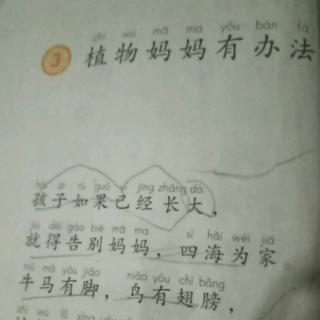 zhí wù mā ma yǒu bàn fǎ
3 植物妈妈有办法
hái zi rú guǒ yǐ jīng zhǎng dà
孩子如果已经长大，
jiù děi gào bié mā ma sì hǎi wéi jiā
就得告别妈妈，四海为家。
niú mǎ yǒu jiǎo niǎo yǒu chì bǎng
牛马有脚，鸟有翅膀，